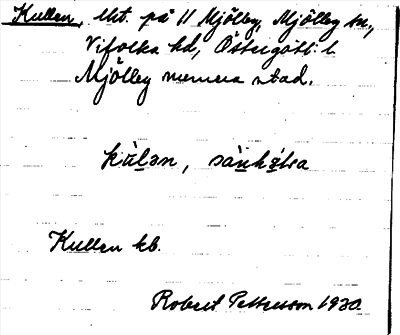 Kullen, lht. på 11 Mjölby, Mjölby sn,
Vifolka hd, Östergötl. l
Mjölby numera stad.
kùlən, sànkə̀lsa
Kullen kb.
Robert Pettersson 1930.